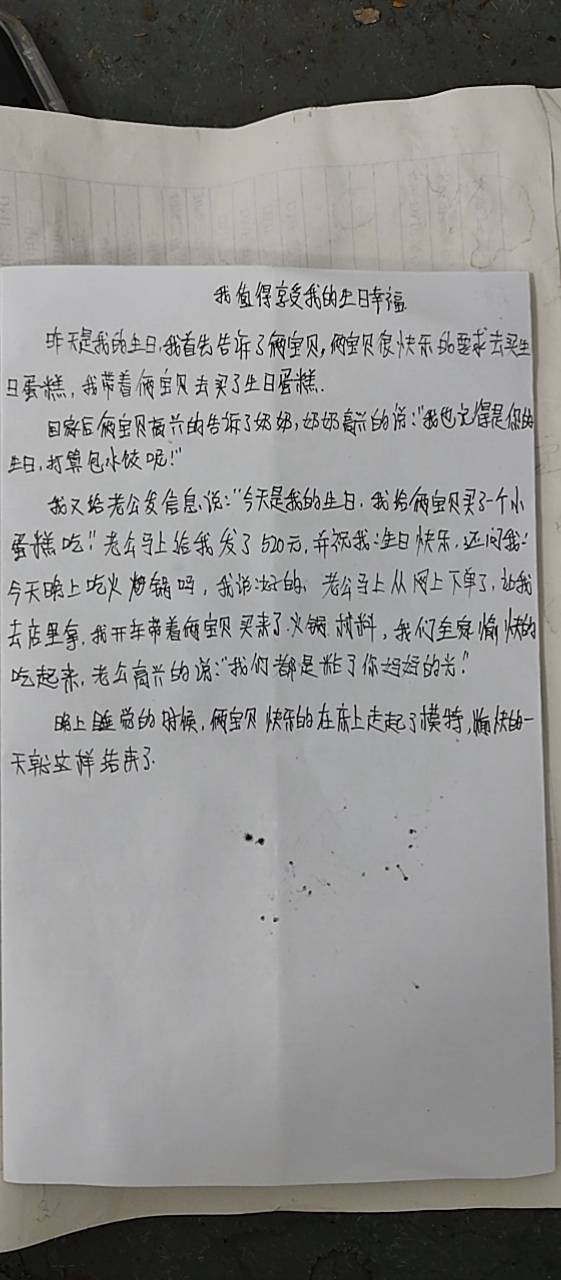 我值得享受我的生日幸福.
昨天是我的生日,我首先告诉了俩宝贝,俩宝贝很快乐的要求去买生
日蛋糕,我带着俩宝贝去买了生日蛋糕.
回家后俩宝贝高兴的告诉了奶奶,奶奶高兴的说:"我也记得是你的
生日,打算包水饺呢!"
我又给老公发信息,说:"今天是我的生日,我给俩宝贝买了一个小
蛋糕吃!"老公马上给我发了520元,并祝我:生日快乐,还问我:
今天晚上吃火锅吗,我说:好的、老公马上从网上下单了,让我
去店里拿,我开车带着俩宝贝买来了火锅材料,我们全家愉快的
吃起来,老公高兴的说:"我们都是粘了你妈妈的光!"
晚上睡觉的时候,俩宝贝快乐的在床上走起了模特,愉快的一
天就这样结束了.